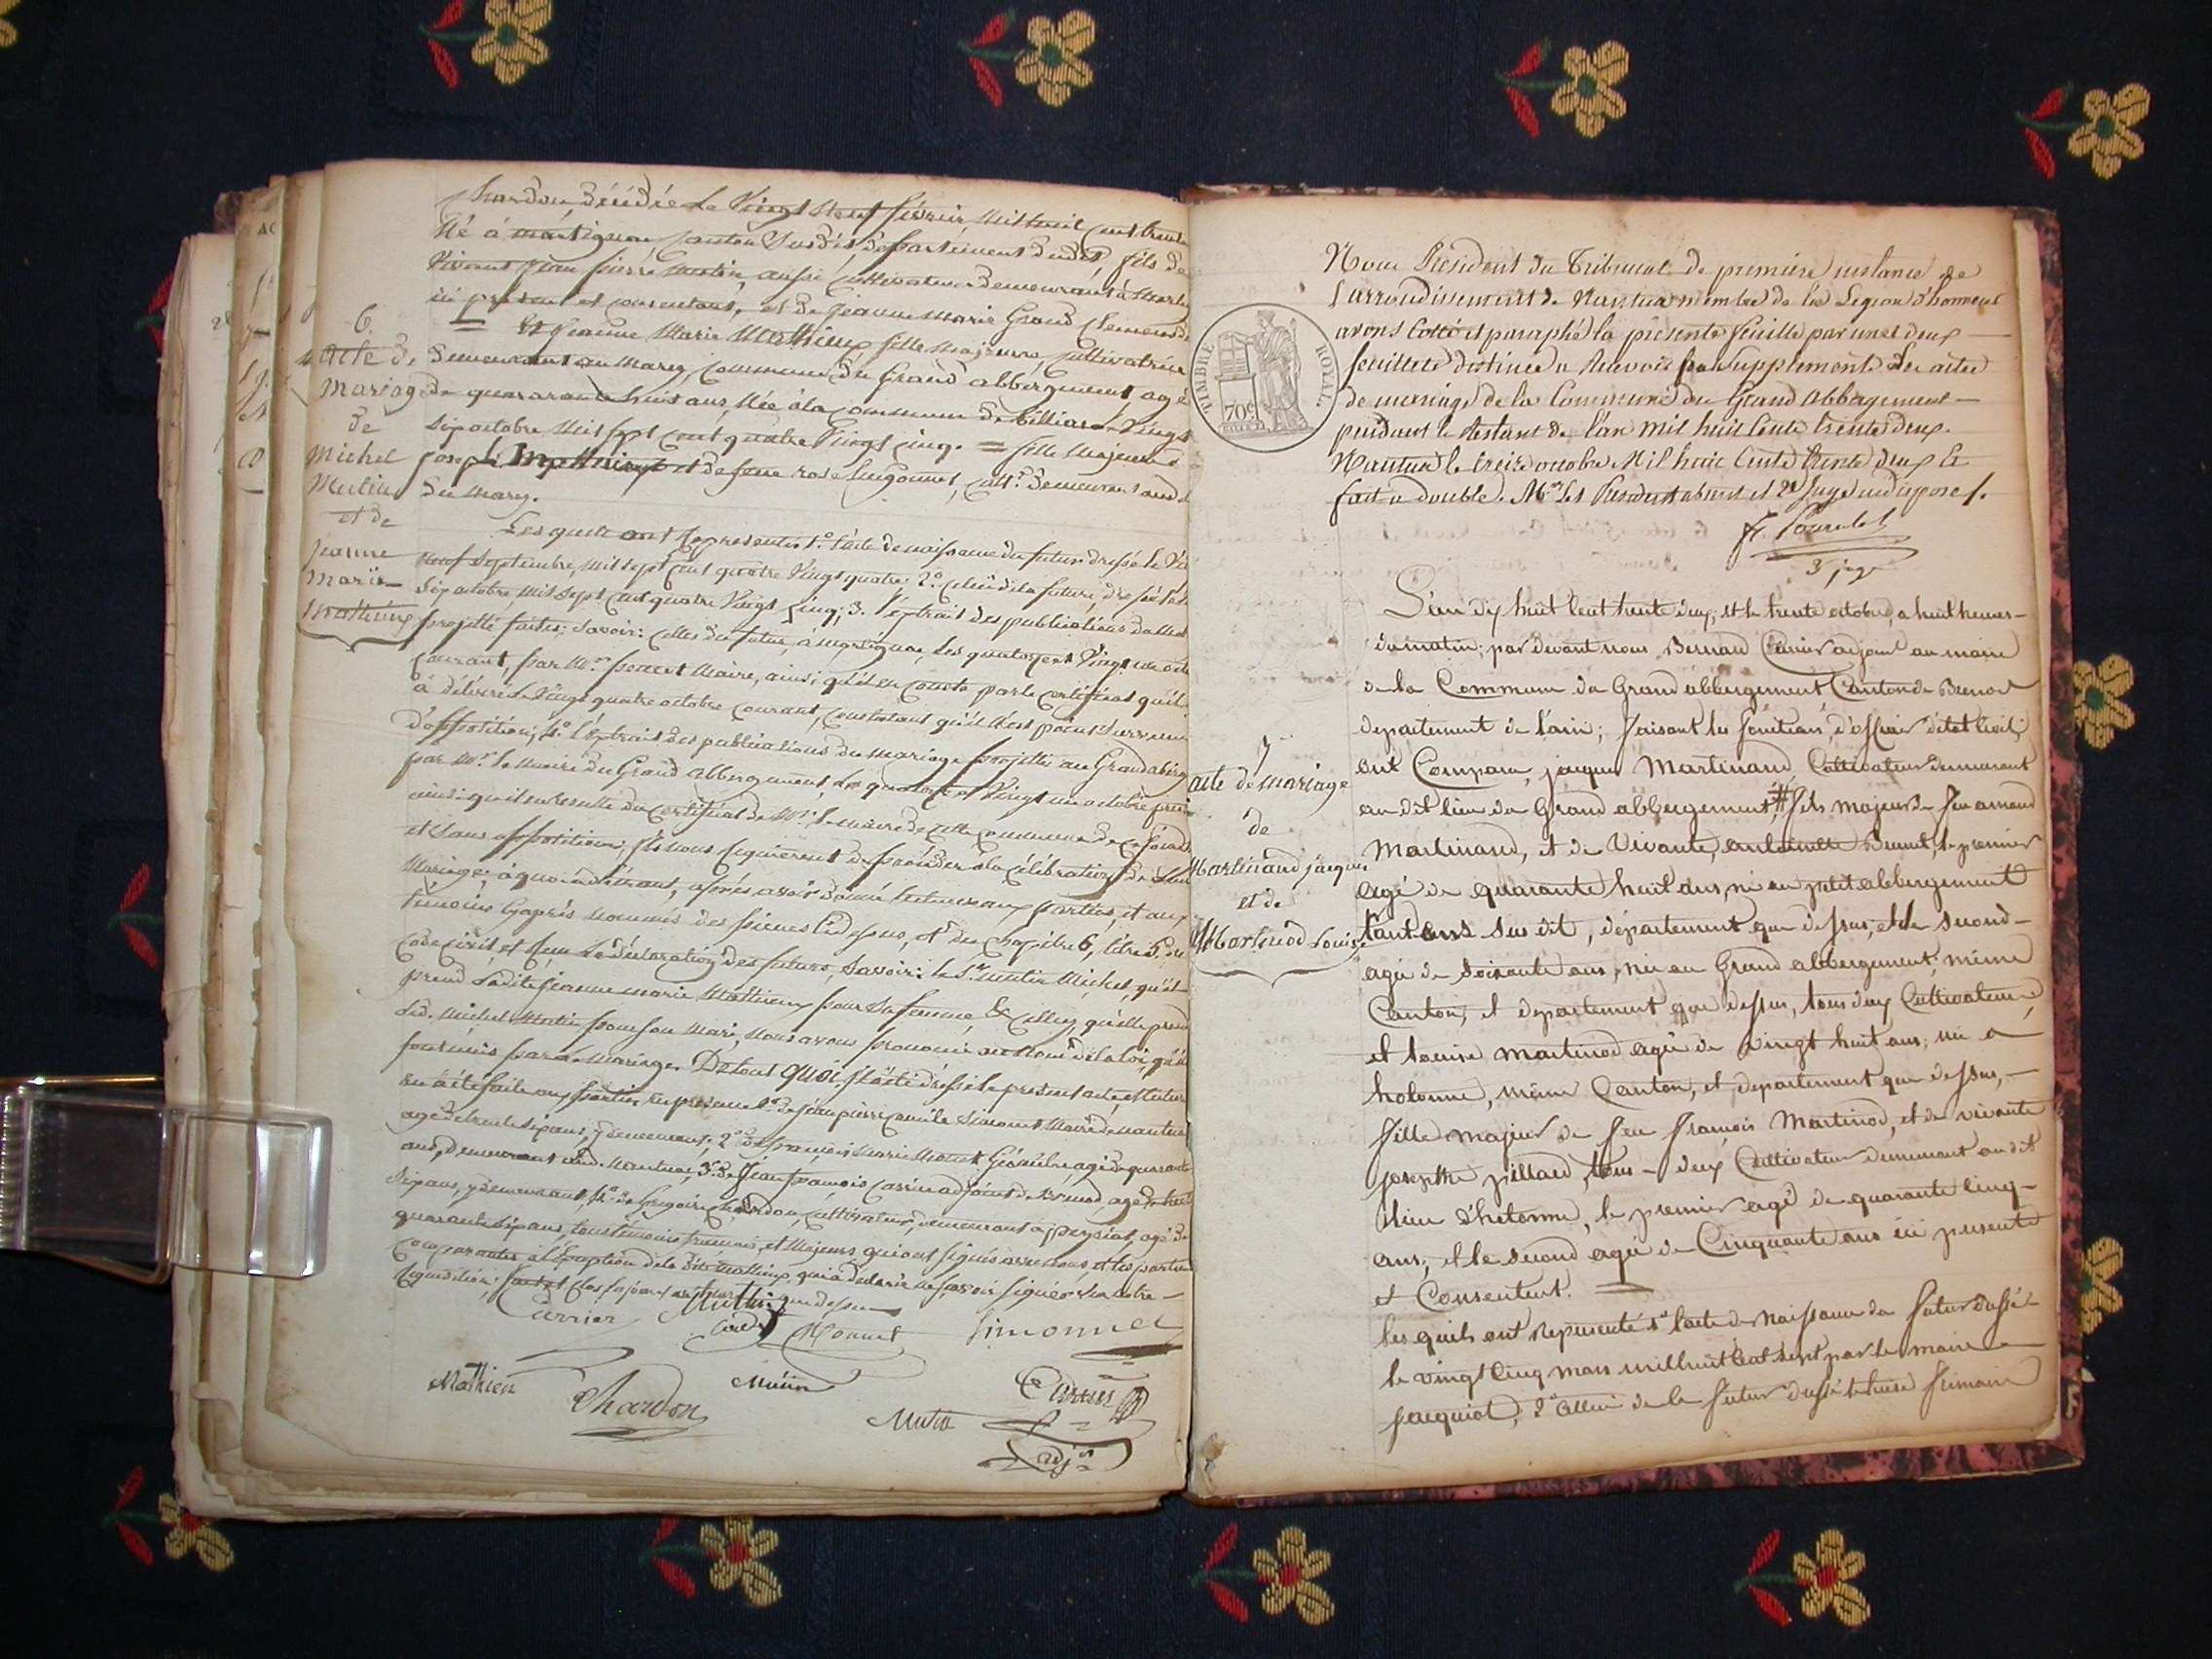 chardon décédée le Vingt neuf février mil huit cent trente
Né à martignat canton susdit, département dudit, fils de
Vivant Jean pierre mutin, aussi cultivateur demeurant à
ici présent et consentant, et de jeanne marie Grand Clement
6.
acte de
mariage
de
Michel
Mutin
et de
jeanne
marie
Mathieu
Et jeanne Marie Mathieu fille majeure, cultivatrice
demeurant au mary, commune du Grand abbergement, agé
de quarante huit ans, Née à la commune de billiat Vingt
six octobre mil sept cent quatre Vingt cinq. = fille majeure d
joseph Mathieu et de feue rose cultr. demeurant aud
du mary.
Les quels ont représentés 1º. l'acte de naissance du futur dressé le
neuf septembre, mil sept cent quatre Vingt quatre; 2º. celui de la future, dressé le
six octobre, mil sept cent quatre Vingt cinq; 3. l'extrait des publications
projetté faites; Savoir: celles du futur, a martignat, les quatorze et Vingt un octo
courant, par Mr. poncet Maire, ainsi qu'il en conste par le certificat qu'il
à délivré le Vingt quatre octobre courant, constatant qu'il n'est point Survenu
d'opposition; 4º. l'extrait des publications du mariage projetté au Grand aberg
par Mr. le maire du Grand abbergement, les quatorze et Vingt un octobre
ainsi qu'il en resulte du certificat de Mr. le maire de cette commune de ce jour
et sans opposition; ils nous requierent de procéder à la célébration de leur
Mariage; à quoi adhérant, après avoir donné lecture aux parties, et aux
témoins ci après nommés des pièces ci dessus, et du chapitre 6, titre 5. du
code civil, et reçu la déclaration des futurs, Savoir: le Sr. mutin Michel, qu'il
prend ladite jeanne marie Mathieu pour sa femme, & celle ci, qu'elle prend
led. michel Mutin pour son mari, nous avons prononcé au Nom de la loi, qu'ils
sont unis par le mariage. De tout quoi il a été dressé le présent acte, et lecture
en a été faite aux parties en présence 1º. de jean pierre camile Simonet Maire de nantua
agé de trente six ans, y demeurant; 2º. de françois marie Monet Géomètre agé de quarante
ans, demeurant aud. nantua; 3º. de Jean françois carrier adjoint de brenod, agé de trente
six ans, y demeurant, 4º. de Gregoire Chardon, cultivateur, demeurant a peyriat, agé de
quarante six ans, tous témoins français, et Majeurs, qui ont signés avec nous, et les parties
comparantes à l'Exception de la dite Mathieu qui a déclaré ne savoir signer sur notre
requisition; fait et clos les jours an que dessus
Carrier Mutin
Monnet Simonnet
Mathieu Chardon Mutin Mutin Carrier
adjt
TIMBRE ROYAL
70c
Nous Président du Tribunal de première instance de
l'arrondissement de Nantua membre de la Légion d'honneur
avons Cotté et paraphé la présente feuille par un et deux
feuillets destinée a Recevoir par Supplément des actes
de mariage de la Commune du Grand abbergement
pendant le Restant de l'an mil huit Cents trente deux.
Nantua le treize octobre Mil huit Cents trente deux Et
fait a double. Mrs les Président absent et 2e Juge indisposé.
3e juge
7
acte de mariage
de
Martinand jacques
et de
Martinod Louise
L'an dix huit Cent trente deux, et le trente octobre a huit heures
du matin; par devant nous Bernard Carrier adjoint au maire
de la Commune du Grand abbergement Canton de Brenod
departement de l'ain; faisant les fonctions, d'officier d'état Civil,
ont Comparu, jacques Martinand, Cultivateur demeurant
au dit lieu du Grand abbergement, # fils majeur de feu
Martinand, et de Vivante, antoinette le premier
agé de quarante huit ans, né au petit abbergement
Canton sus dit, département que dessus, et la second
agée de soixante ans, née au Grand abbergement, même
Canton, et departement que dessus, tous deux Cultivateurs,
et louise martinod agée de Vingt huit ans, née a
hotonne, même Canton, et departement que dessus,
fille majeur de feu François Martinod, et de vivante
josepthe pillard, tous deux Cultivateur demeurant au dit
lieu d'hotonne, le premier agé de quarante Cinq
ans, et le second agée de Cinquante ans ici présente
et Consentent.
les quels ont Representé 1º l'acte de Naissance du futur dressé
le vingt Cinq mars mil huit Cent sept par le maire
jacquiot, 2º Celui de la futur dressé le treize frimaire